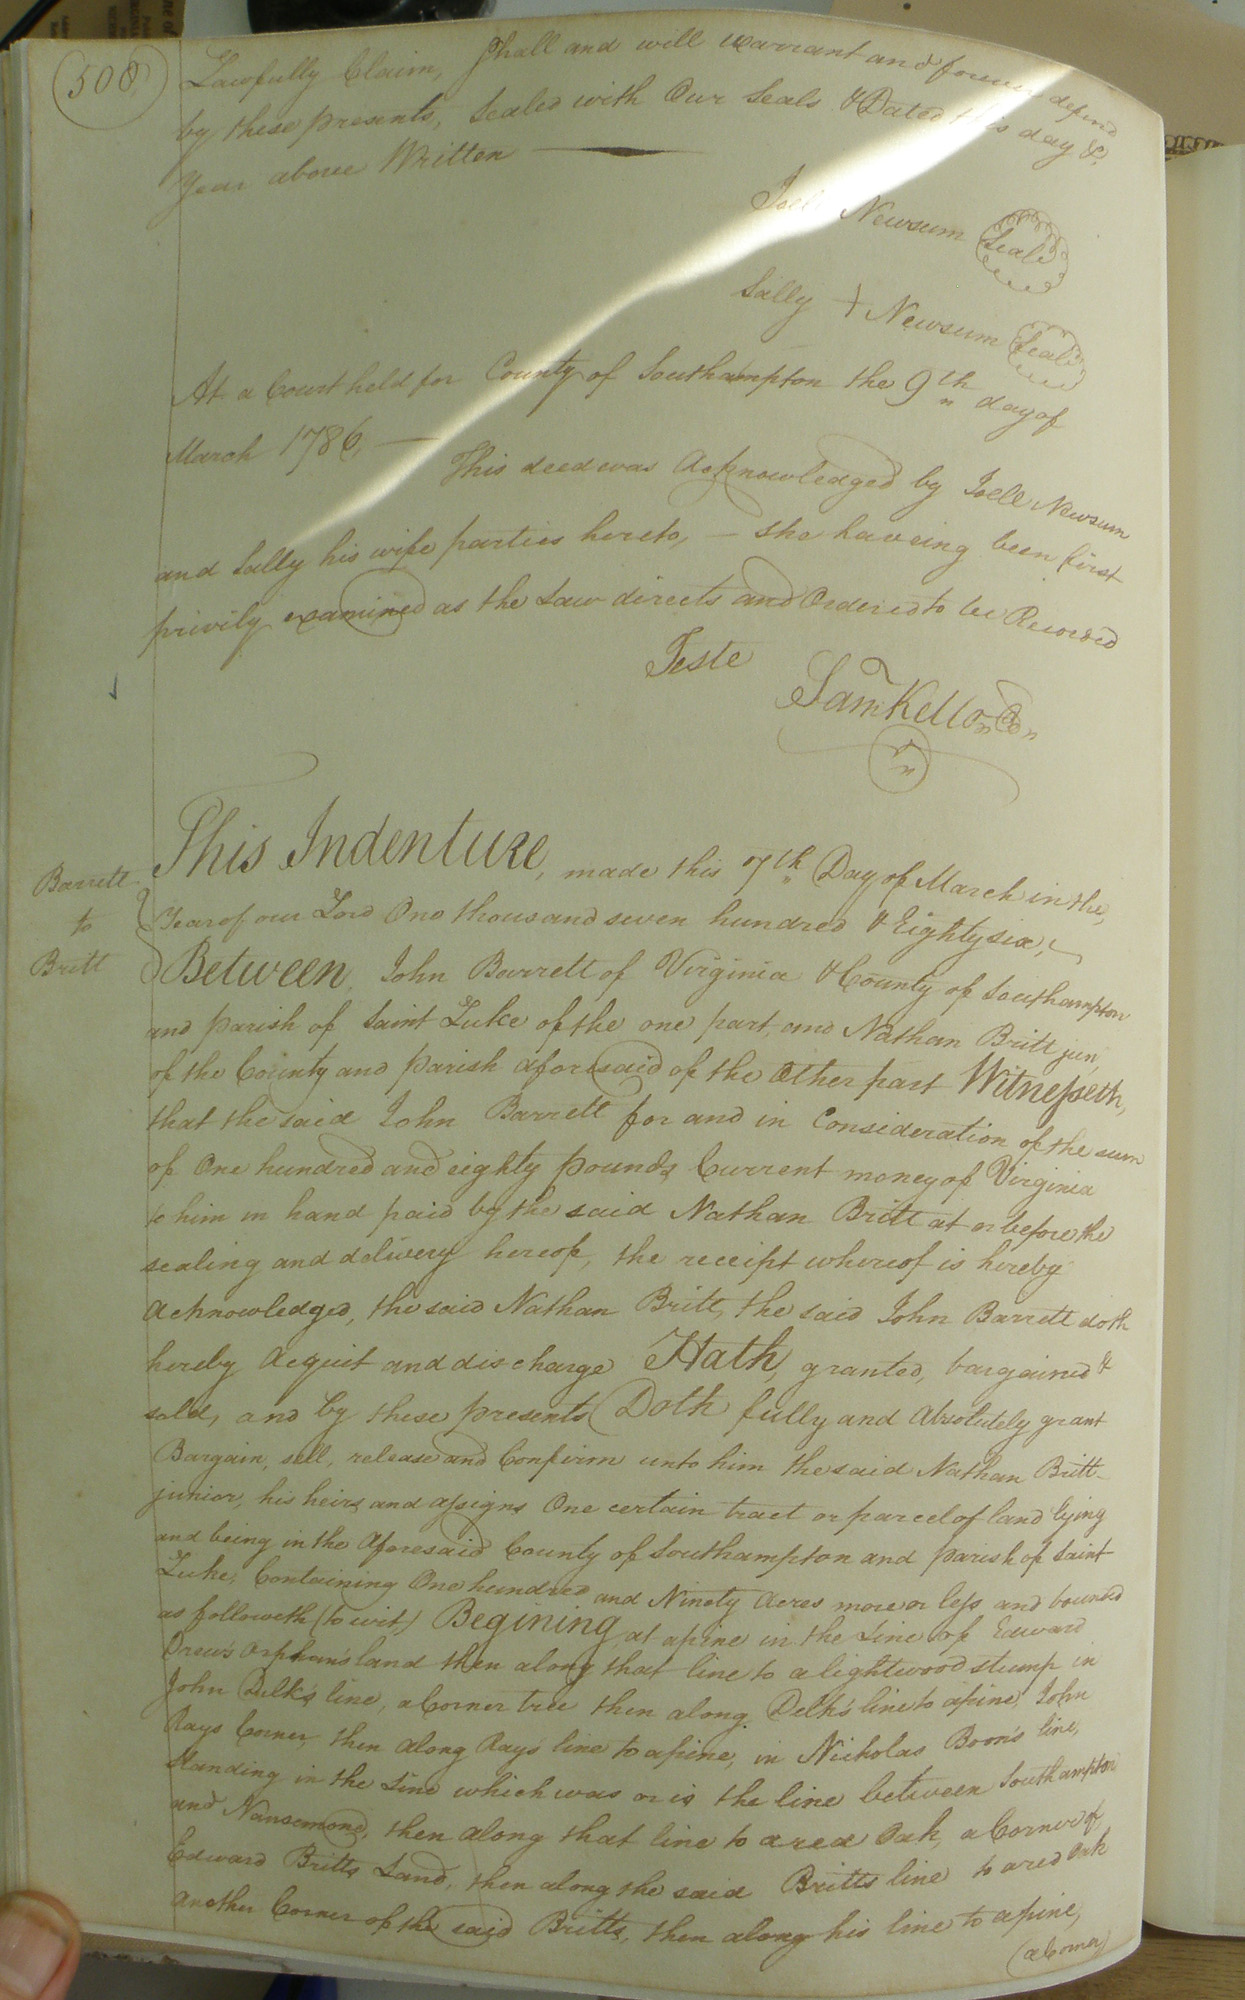 508
Lawfully Claim, Shall and will warrant and forever defend
by these presents, Sealed with Our Seals & Dated this day &
Year above Written
Joell Newsum Seal
Sally + Newsum Seal
At a Court held for County of Southampton the 9th day of
March 1786,
This deed was Acknowledged by Joell Newsum
and Sally his wife parties hereto, – she haveing been first
privily examined as the Law directs and Ordered to be Recorded
Teste
Sam Kello
Barrett
to
Britt
This Indenture, made this 7th Day of March in the,
Year of our Lord One thousand seven hundred & Eighty six,
Between, John Barrett of Virginia & County of Southampton
and parish of Saint Luke of the one part, and Nathan Britt jun,
of the County and parish aforesaid of the Other part Witnesseth,
that the said John Barrett for and in Consideration of the sum
of One hundred and eighty pounds Current money of Virginia
to him in hand paid by the said Nathan Britt at or before the
sealing and delivery hereof, the receipt whereof is hereby
Acknowledged, the said Nathan Britt, the said John Barrett doth
hereby Acquit and discharge Hath, granted, bargained &
sold, and by these presents Doth fully and Absolutely grant
Bargain, sell, release and Confirm unto him the said Nathan Britt
junior, his heirs and assigns One certain tract or parcel of land lying
and being in the Aforesaid County of Southampton and parish of Saint
Luke, Containing One hundred and Ninety Acres more or less and bound
as followeth (to wit,) Begining at a pine in the Line of Edward
Drew's Orphan's land then along that line to a lightwood stump in
John Delk's line, a Corner tree then along Delk's line to a pine, John
Rays Corner, then along Rays line to a pine, in Nicholas Boon's line,
standing in the Line which was or is the line between Southampton
and Nansemond, then along that line to a red Oak, a Corner of
Edward Britts Land, then along the said Britts line to a red Oak
another Corner of the said Britts, then along his line to a pine,
(a Corner)